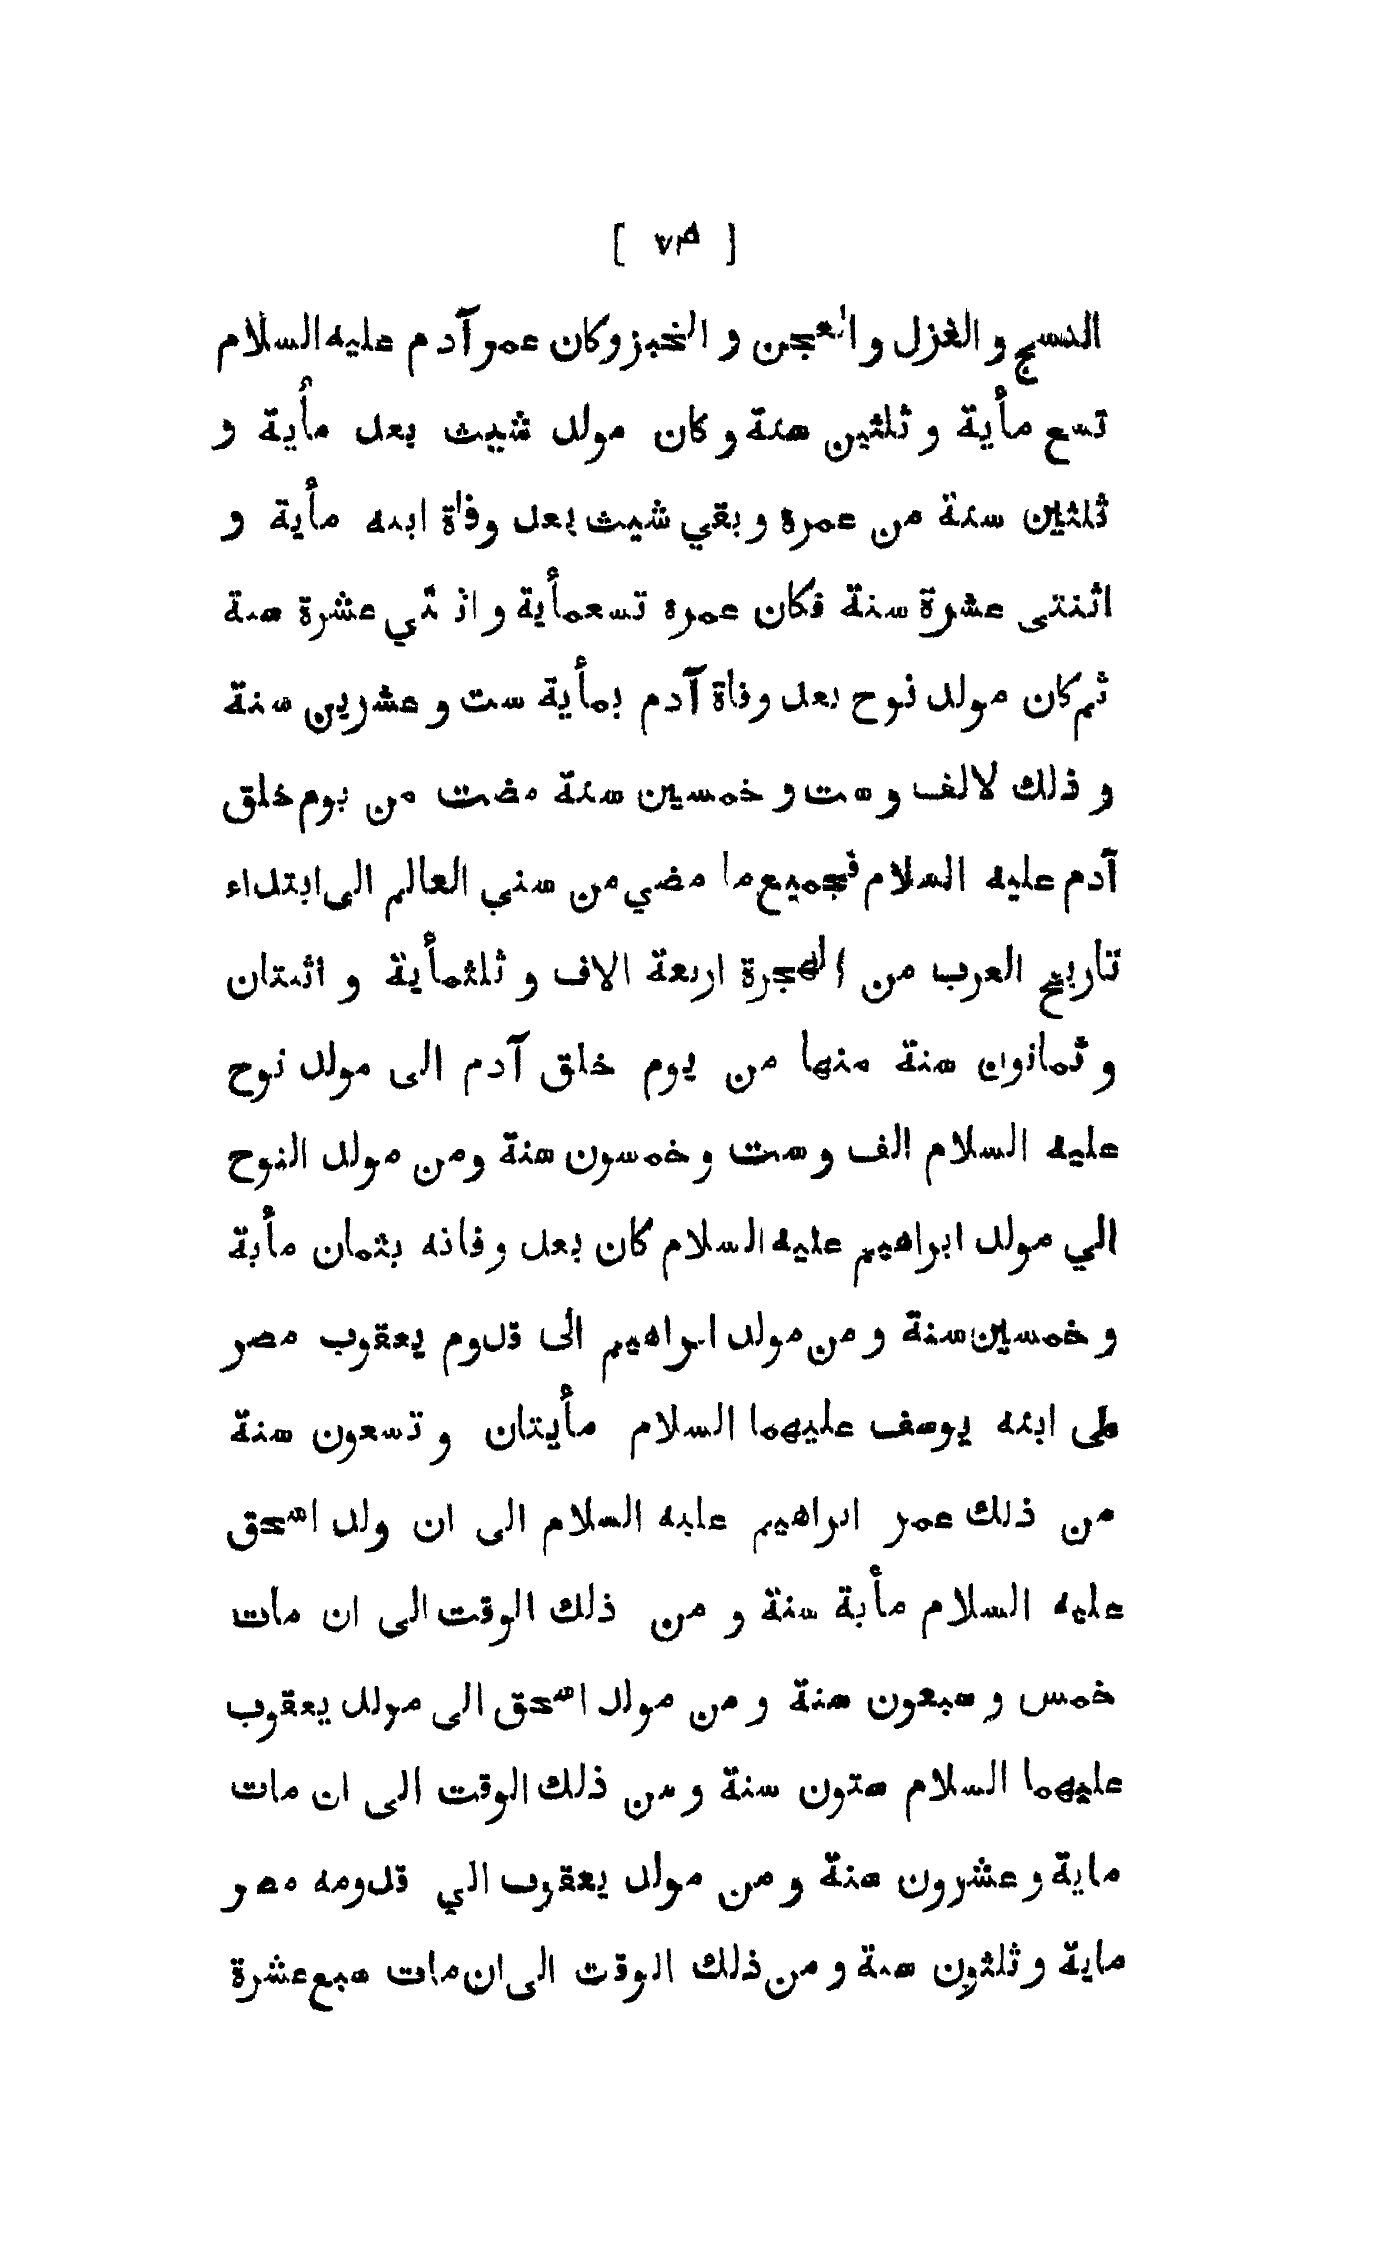 [ ٧٣ ]
النسج و الغزل و العجن و الخبز وكان عمر آدم عليه السلام
تسع مأية و ثلثين سنة و كان مولد شيث بعد مأية و
ثلثين سنة من عمره و بقي شيث بعد وفاة ابيه مأية و
اثنتى عشرة سنة فكان عمره تسعمأية و اثنتي عشرة سنة
ثم كان مولد نوح بعد وفاة آدم بمأية ست و عشرين سنة
و ذلك لالف و ست و خمسين سنة مضت من يوم خلق
آدم عليه السلام فجميع ما مضي من سني العالم الى ابتداء
تاريخ العرب من الهجرة اربعة الاف و ثلثمأية و اثنتان
و ثمانون سنة منها من يوم خلق آدم الى مولد نوح
عليه السلام الف و ست و خمسون سنة ومن مولد النوح
الي مولد ابراهيم عليه السلام كان بعد وفاته بثمان مأية
و خمسين سنة و من مولد ابراهيم الى قدوم يعقوب مصر
على ابنه يوسف عليهما السلام مأيتان و تسعون سنة
من ذلك عمر ابراهيم عليه السلام الى ان ولد اسحق
عليه السلام مأية سنة و من ذلك الوقت الى ان مات
خمس و سبعون سنة و من مولد اسحق الى مولد يعقوب
عليهما السلام ستون سنة و من ذلك الوقت الى ان مات
ماية و عشرون سنة و من مولد يعقوب الي قدومه مصر
ماية و ثلثون سنة و من ذلك الوقت الى ان مات سبع عشرة